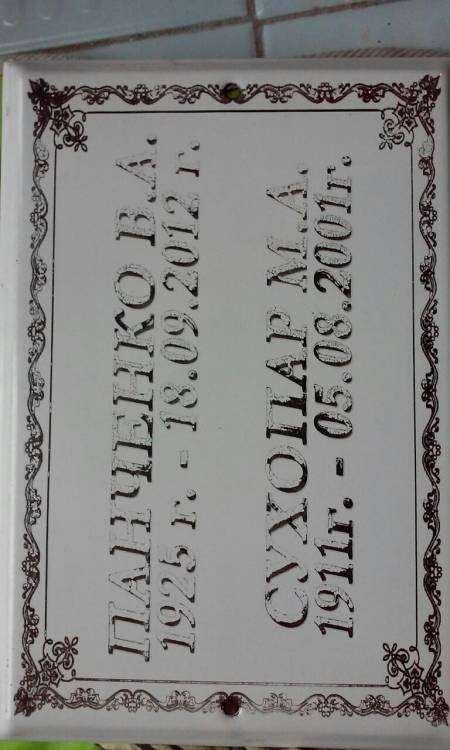 ПАНЧЕНКО В.А.
1925 г. - 18.09.2012 г.
СУХОПАР М.А.
1911г. - 05.08.2001г.